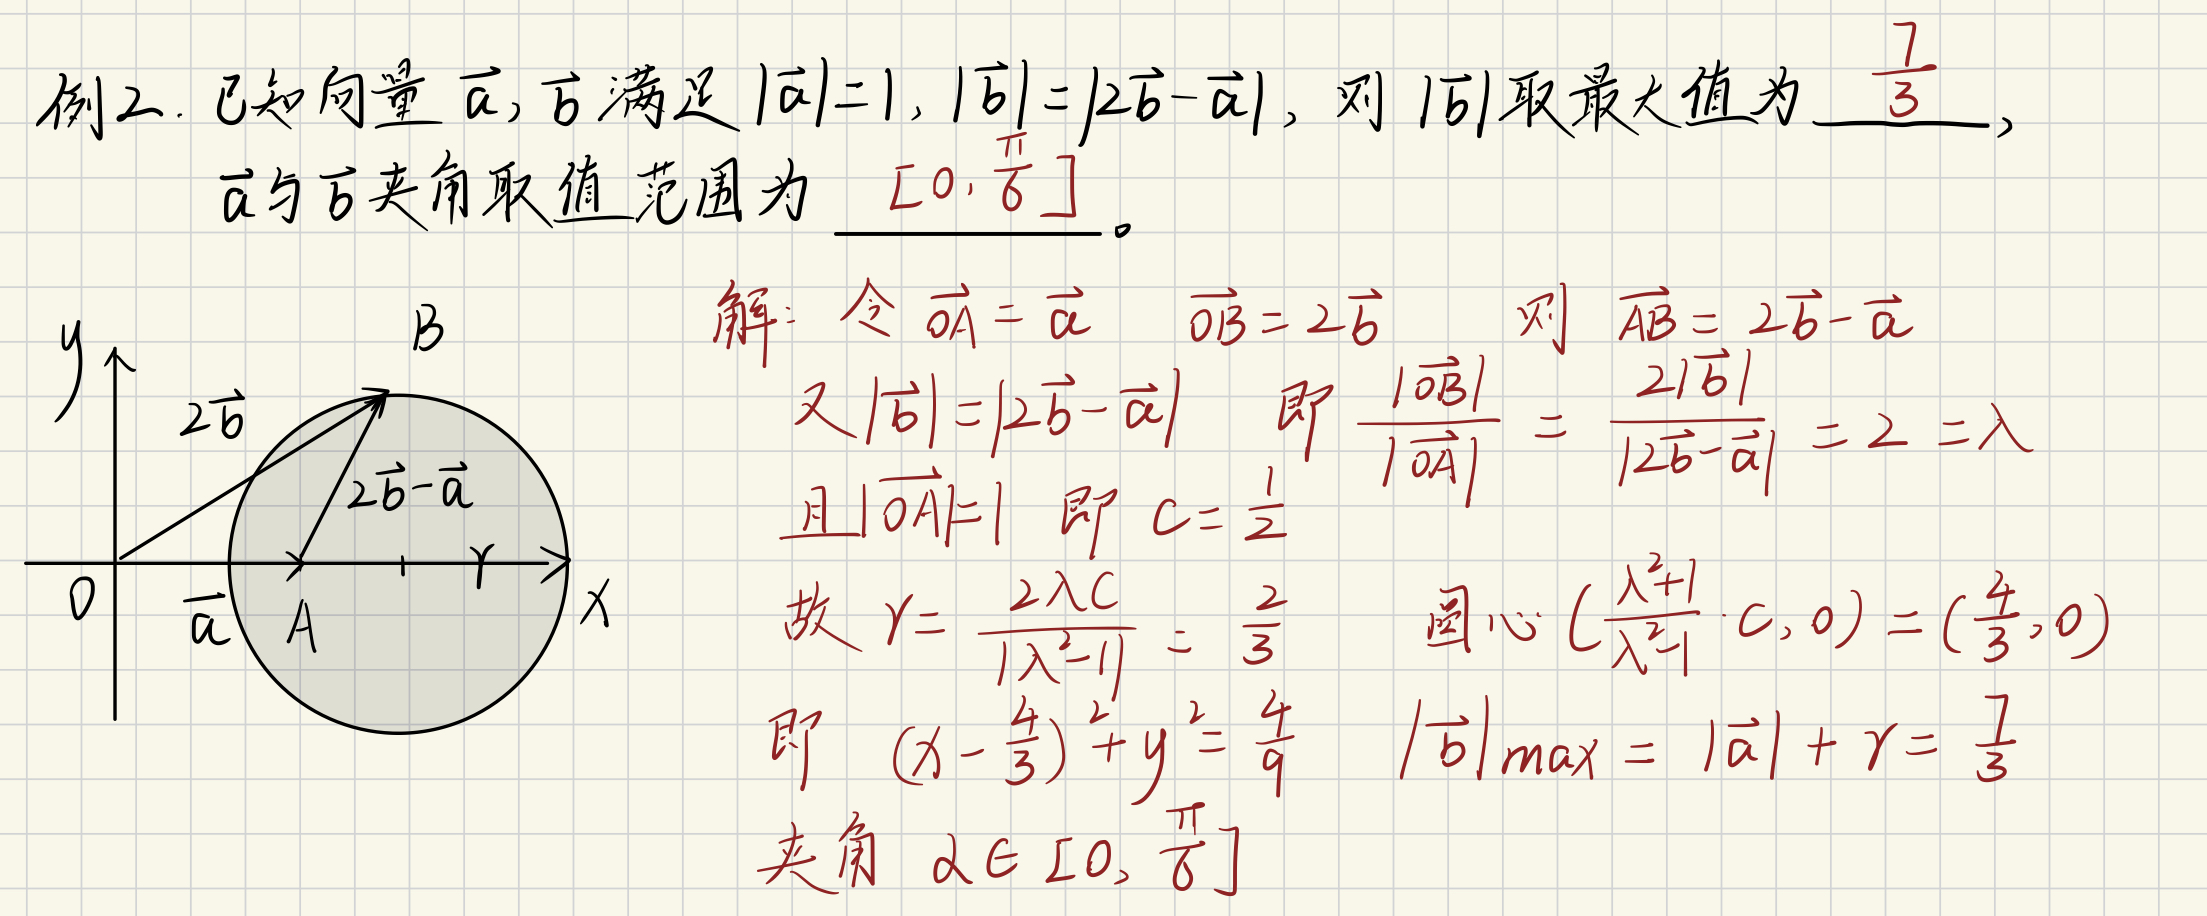 例2. 已知向量 $\vec{a}$, $\vec{b}$ 满足 $|\vec{a}|=1$, $|\vec{b}|=|2\vec{b}-\vec{a}|$, 则 $|\vec{b}|$ 取最大值为 $\frac{7}{3}$,
$\vec{a}$ 与 $\vec{b}$ 夹角取值范围为 $[0, \frac{\pi}{6}]$。
y
B
$2\vec{b}$
$2\vec{b}-\vec{a}$
r
O
$\vec{a}$
A
x
解: 令 $\overrightarrow{OA}=\vec{a}$ $\overrightarrow{OB}=2\vec{b}$ 则 $\overrightarrow{AB}=2\vec{b}-\vec{a}$
又 $|\vec{b}|=|2\vec{b}-\vec{a}|$ 即 $\frac{|\overrightarrow{OB}|}{|\overrightarrow{OA}|}=\frac{2|\vec{b}|}{|2\vec{b}-\vec{a}|}=2=\lambda$
且 $|\overrightarrow{OA}|=1$ 即 $C=\frac{1}{2}$
故 $r=\frac{2\lambda C}{|\lambda^2-1|}=\frac{2}{3}$ 圆心 $(\frac{\lambda^2+1}{\lambda^2-1}\cdot C, 0)=(\frac{4}{3}, 0)$
即 $(x-\frac{4}{3})^2+y^2=\frac{4}{9}$ $|\vec{b}|max=|\vec{a}|+r=\frac{7}{3}$
夹角 $\alpha\in[0, \frac{\pi}{6}]$